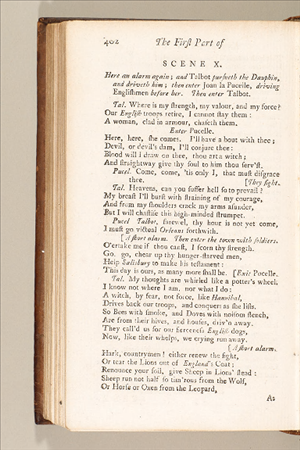 402 The First Part of
SCENE X.
Here an alarm again; and Talbot pursueth the Dauphin,
and driveth him; then enter Joan la Pucelle, driving
Englishmen before her. Then enter Talbot.
Tal. Where is my strength, my valour, and my force?
Our English troops retire, I cannot stay them:
A woman, clad in armour, chaseth them.
Enter Pucelle.
Here, here, she comes. I'll have a bout with thee;
Devil, or devil's dam, I'll conjure thee:
Blood will I draw on thee, thou art a witch;
And straightway give thy soul to him thou serv'st.
Pucel. Come, come, 'tis only I, that must disgrace
thee. [They fight.
Tal. Heavens, can you suffer hell so to prevail?
My breast I'll burst with straining of my courage,
And from my shoulders crack my arms asunder,
But I will chastise this high-minded strumpet.
Pucel. Talbot, farewel, thy hour is not yet come,
I must go victual Orleans forthwith.
[A short alarm. Then enter the town with soldiers.
O'ertake me if thou canst, I scorn thy strength.
Go, go, chear up thy hunger-starved men,
Help Salisbury to make his testament:
This day is ours, as many more shall be. [Exit Pucelle.
Tal. My thoughts are whirled like a potter's wheel,
I know not where I am, nor what I do:
A witch, by fear, not force, like Hannibal,
Drives back our troops, and conquers as she lists.
So Bees with smoke, and Doves with noisom stench,
Are from their hives, and houses, driv'n away.
They call'd us for our fierceness English dogs,
Now, like their whelps, we crying run away.
[A short alarm.
Hark, countrymen! either renew the fight,
Or tear the Lions out of England's Coat;
Renounce your soil, give Sheep in Lions' stead:
Sheep run not half so tim'rous from the Wolf,
Or Horse or Oxen from the Leopard,
As